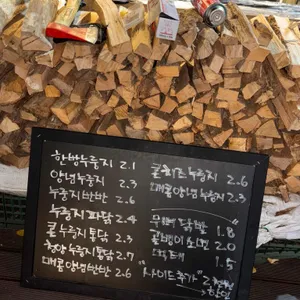 한방누룽지 2.1
양념누룽지 2.3
누룽지반반 2.6
누룽지파닭 2.4
콘누룽지통닭 2.3
청양누룽지통닭 2.7
매콤양념반반 2.6
콘치즈누룽지 2.6
매콤양념누룽지 2.3
무뼈닭발 1.8
골뱅이소면 2.0
1.5
"사이드추가"